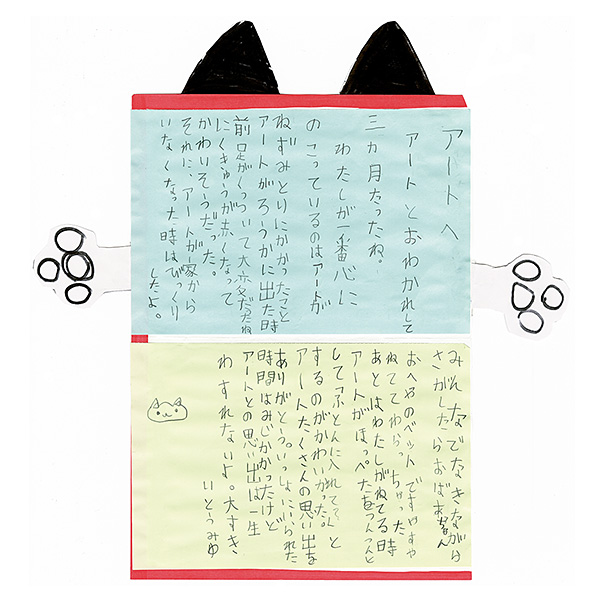 アートへ
アートとおわかれして
三カ月たったね。
わたしが一番心に
のこっているのはアートが
ねずみとりにかかったこと
アートがろうかに出た時
前足がくっついて大変だったね
にくきゅうが赤くなって
かわいそうだった。
それに、アートが家から
いなくなった時はびっくり
したよ。
みんなでなきながら
さがしたらおばあちゃん
おへやのベットですやすや
ねててわらっちゃった
あとはわたしがねてる時
アートがほっぺたをつんつんと
してふとんに入れてと
するのがかわいかった。
アートたくさんの思い出を
ありがとう。いっしょにいられた
時間はみじかかったけど
アートとの思い出は一生
わすれないよ。大すき
いとうみゆ